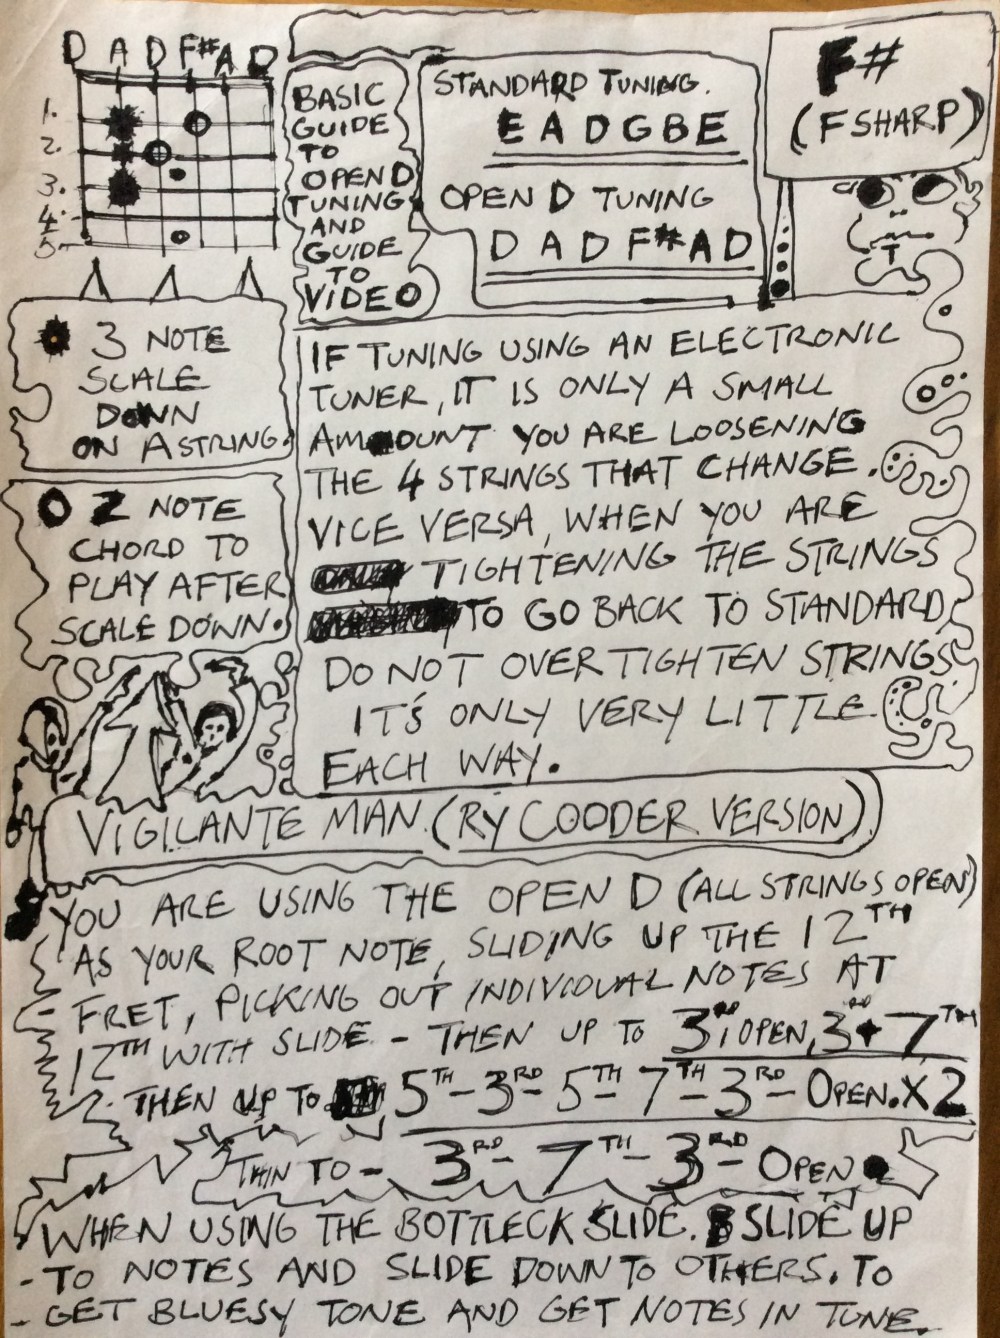 D A D F# A D
1.
2.
3.
4.
5
BASIC
GUIDE
TO
OPEN D
TUNING
AND
GUIDE
TO
VIDEO
STANDARD TUNING.
E A D G B E
OPEN D TUNING
D A D F# A D
F#
(F SHARP)
3 NOTE
SCALE
DOWN
ON A STRING.
2 NOTE
CHORD TO
PLAY AFTER
SCALE DOWN.
IF TUNING USING AN ELECTRONIC
TUNER, IT IS ONLY A SMALL
AMOUNT YOU ARE LOOSENING
THE 4 STRINGS THAT CHANGE.
VICE VERSA, WHEN YOU ARE
TIGHTENING THE STRINGS
TO GO BACK TO STANDARD,
DO NOT OVER TIGHTEN STRINGS
IT'S ONLY VERY LITTLE
EACH WAY.
VIGILANTE MAN. (RY COODER VERSION)
YOU ARE USING THE OPEN D (ALL STRINGS OPEN)
AS YOUR ROOT NOTE, SLIDING UP THE 12TH
FRET, PICKING OUT INDIVIDUAL NOTES AT
12TH WITH SLIDE - THEN UP TO 3RD, OPEN, 3RD + 7TH
- THEN UP TO 5TH - 3RD - 5TH - 7TH - 3RD - OPEN. X2
THIN TO - 3RD - 7TH - 3RD - OPEN
WHEN USING THE BOTTLECK SLIDE. SLIDE UP
- TO NOTES AND SLIDE DOWN TO OTHERS. TO
- GET BLUESY TONE AND GET NOTES IN TUNE.